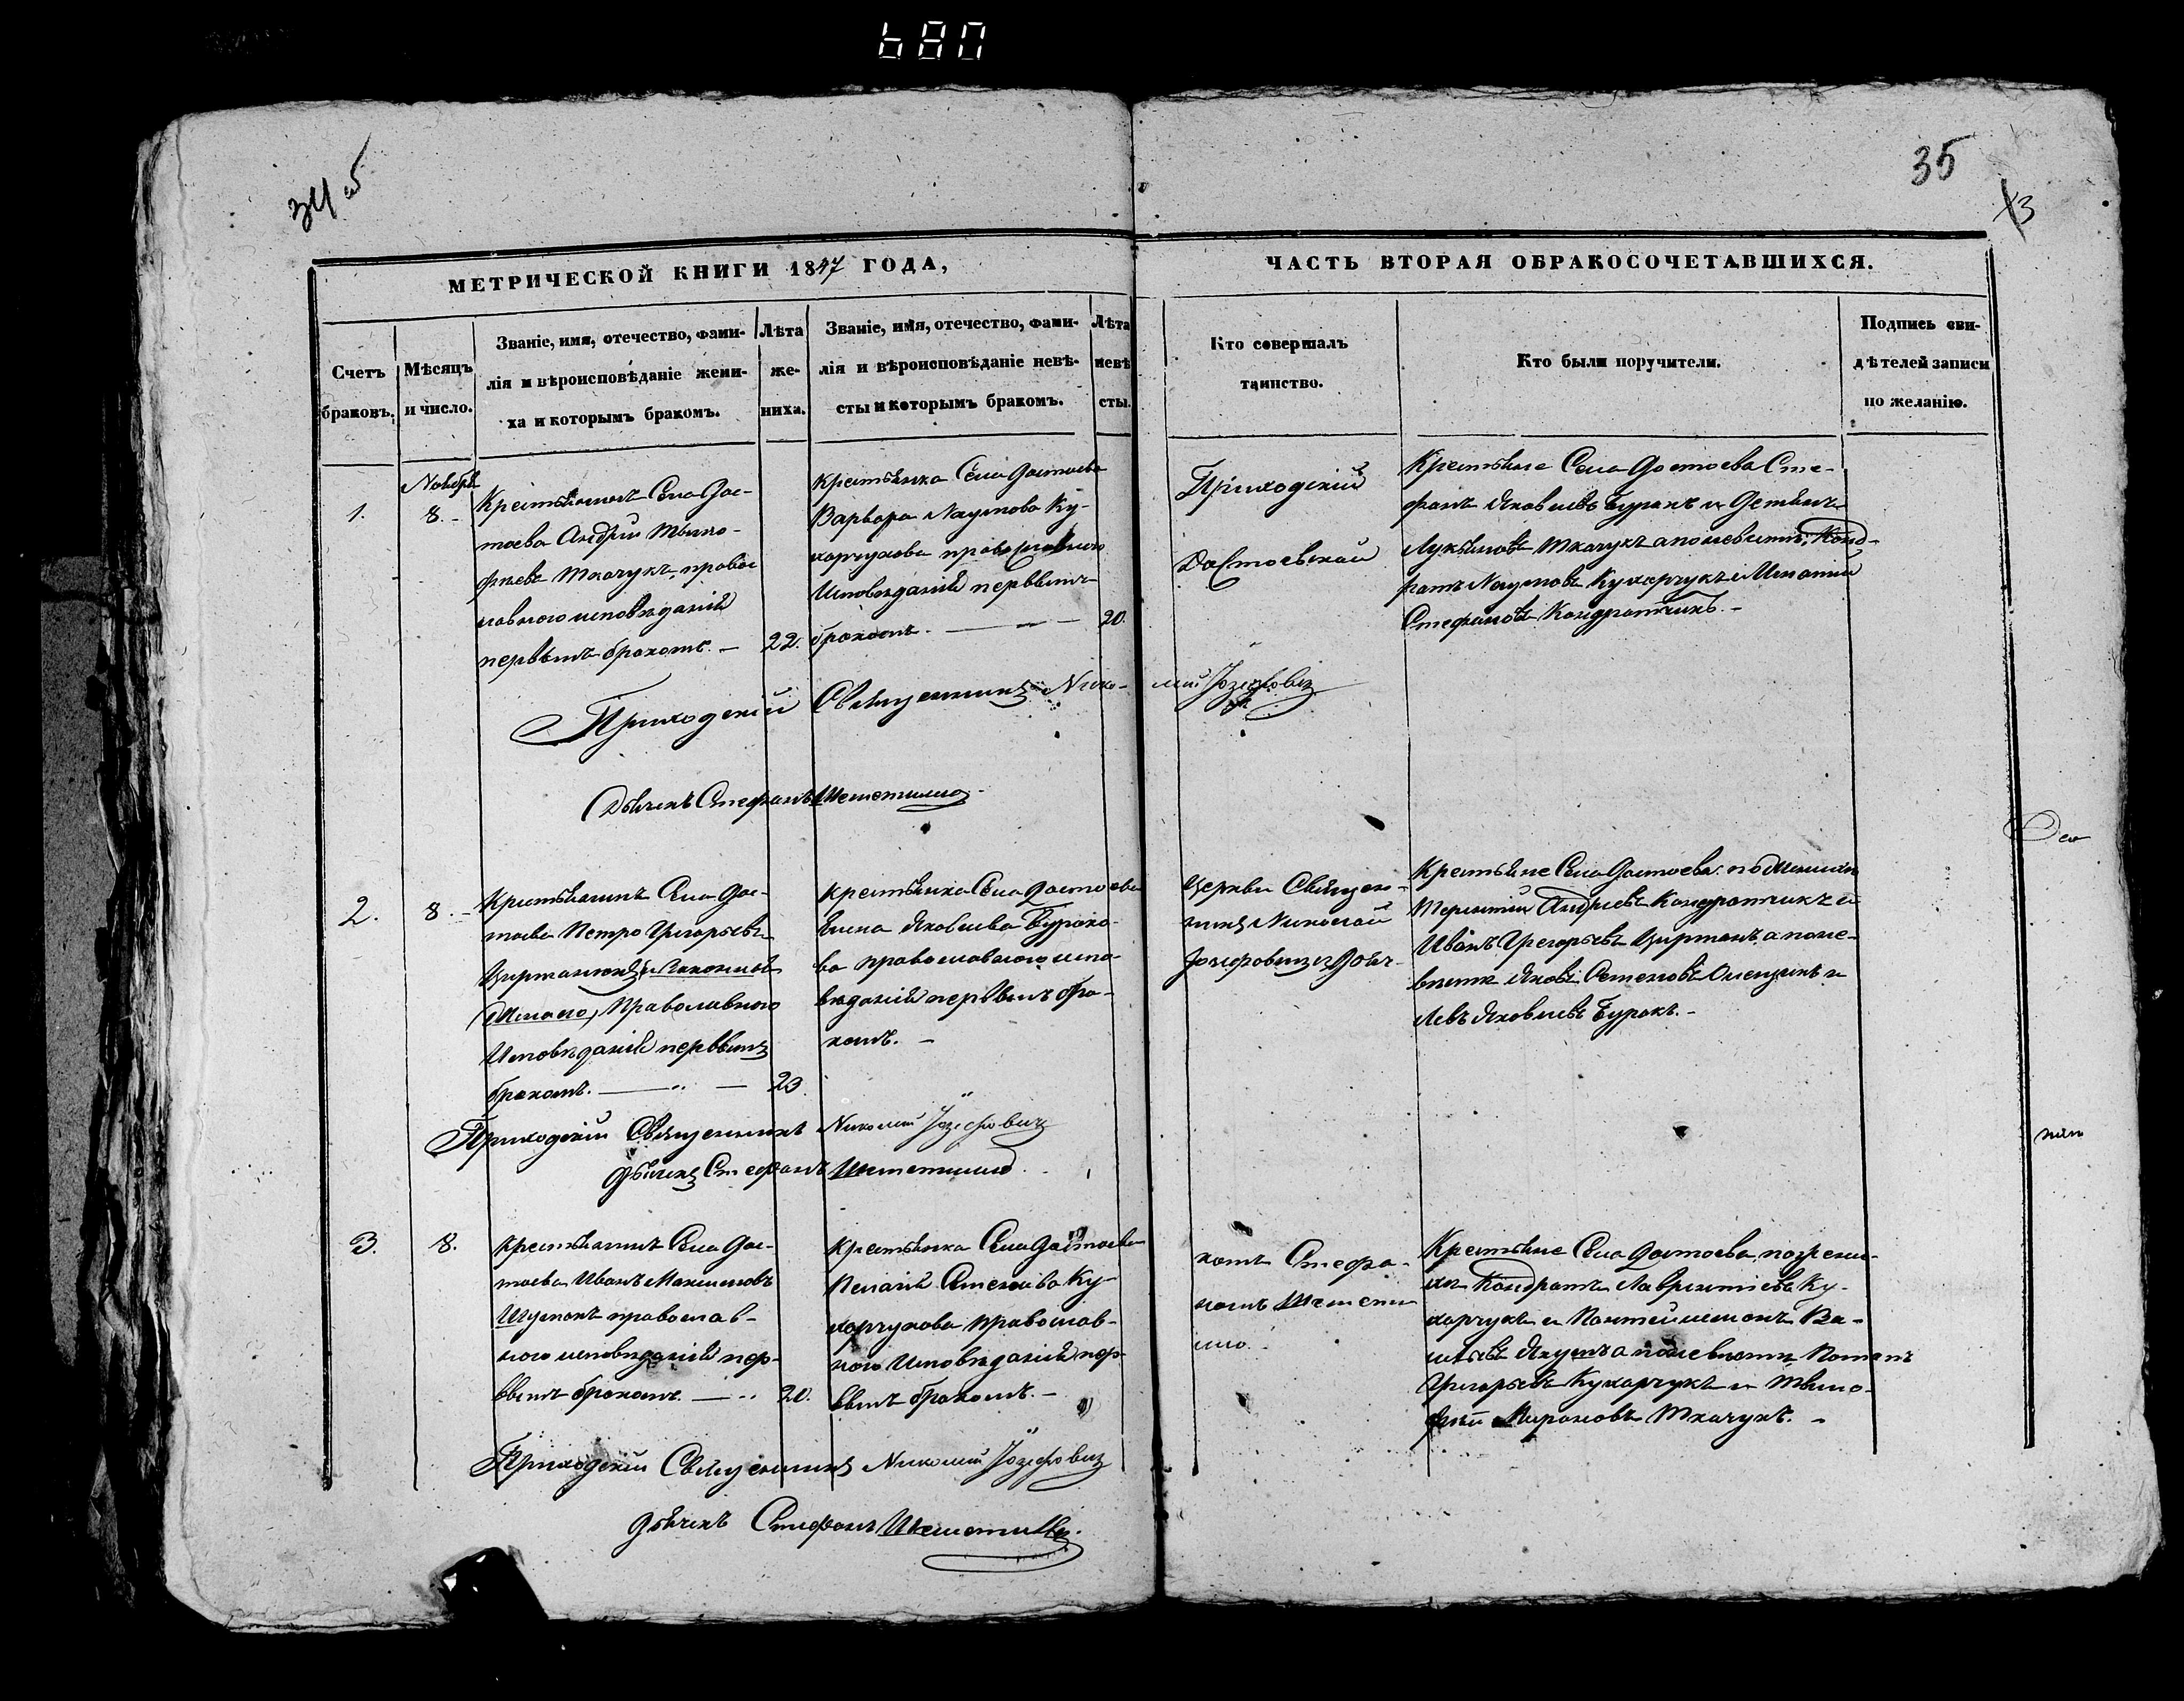 680
34 об
35
13
МЕТРИЧЕСКОЙ КНИГИ 1847 ГОДА,
ЧАСТЬ ВТОРАЯ ОБРАКОСОЧЕТАВШИХСЯ.
Счетъ
браковъ.
Мѣсяцъ
и число.
Званіе, имя, отечество, фами-
лія и вѣроисповѣданіе жени-
ха и которымъ бракомъ.
Лѣта
же-
ниха.
Званіе, имя, отечество, фами-
лія и вѣроисповѣданіе невѣ-
сты и которымъ бракомъ.
Лѣта
невѣ
сты.
Кто совершалъ
таинство.
Кто были поручители.
Подпись сви-
дѣтелей записи
по желанію.
1.
Ноябрь
8.-
Крестьянинъ Села Дос-
тоева Андрій Тымо-
фѣевъ Ткачукъ, правос
лавного исповѣданія
первымъ бракомъ. —
22.
Крестьянка Села Достоева
Варвара Наумова Ку-
харчукова православного
Исповѣданія первымъ
бракомъ. —
20.
Приходскій
Достоевской
Крестьяне Села Достоева Сте-
фанъ Яковлевъ Буракъ и
Лукьяновъ Ткачукъ а поневѣстѣ, Конд-
ратъ Наумовъ Кухарчукъ и
Стефановъ Кондратчикъ. -
Приходскій Священникъ Николай Іозефовичъ
Дьячекъ Стефанъ Шеметилло
2.
8.-
Крестьянинъ Села Дос-
тоева Петро Григорьевъ
Православного
Исповѣданія первымъ
бракомъ. —
23.
Крестьянка Села Достоева
Елена Яковлева Бурако-
ва православного испо-
вѣданія первымъ бра-
комъ. -
Церкви Священ-
никъ Николай
Іозефовичъ и Дьяч-
Крестьяне Села Достоева по
Терентій Андреевъ Кондратчикъ и
Иванъ Григорьевъ а поне-
вѣстѣ Яковъ
Левъ Яковлевъ Буракъ. -
Приходскій Священникъ Николай Іозефовичъ
Дьячекъ Стефанъ Шеметилло
3.
8.
Крестьянинъ Села Дос-
тоева Иванъ Максимовъ
православ-
ного исповѣданія пер-
ввымъ бракомъ. —
20.
Крестьянка Села Достоева
Пелагія Ку-
харчукова православ-
ного Исповѣданія пер-
ввымъ бракомъ. -
комъ Стефа-
номъ Шемети
лло.
Крестьяне Села Достоева
Кондратъ Лаврентіевъ Ку-
харчукъ и Ва-
а поневѣстѣ Потапъ
Григорьевъ Кухарчукъ и Тымо-
фѣй Мироновъ Ткачукъ. -
Приходскій Священникъ Николай Іозефовичъ
Дьячекъ Стефанъ Шеметилло